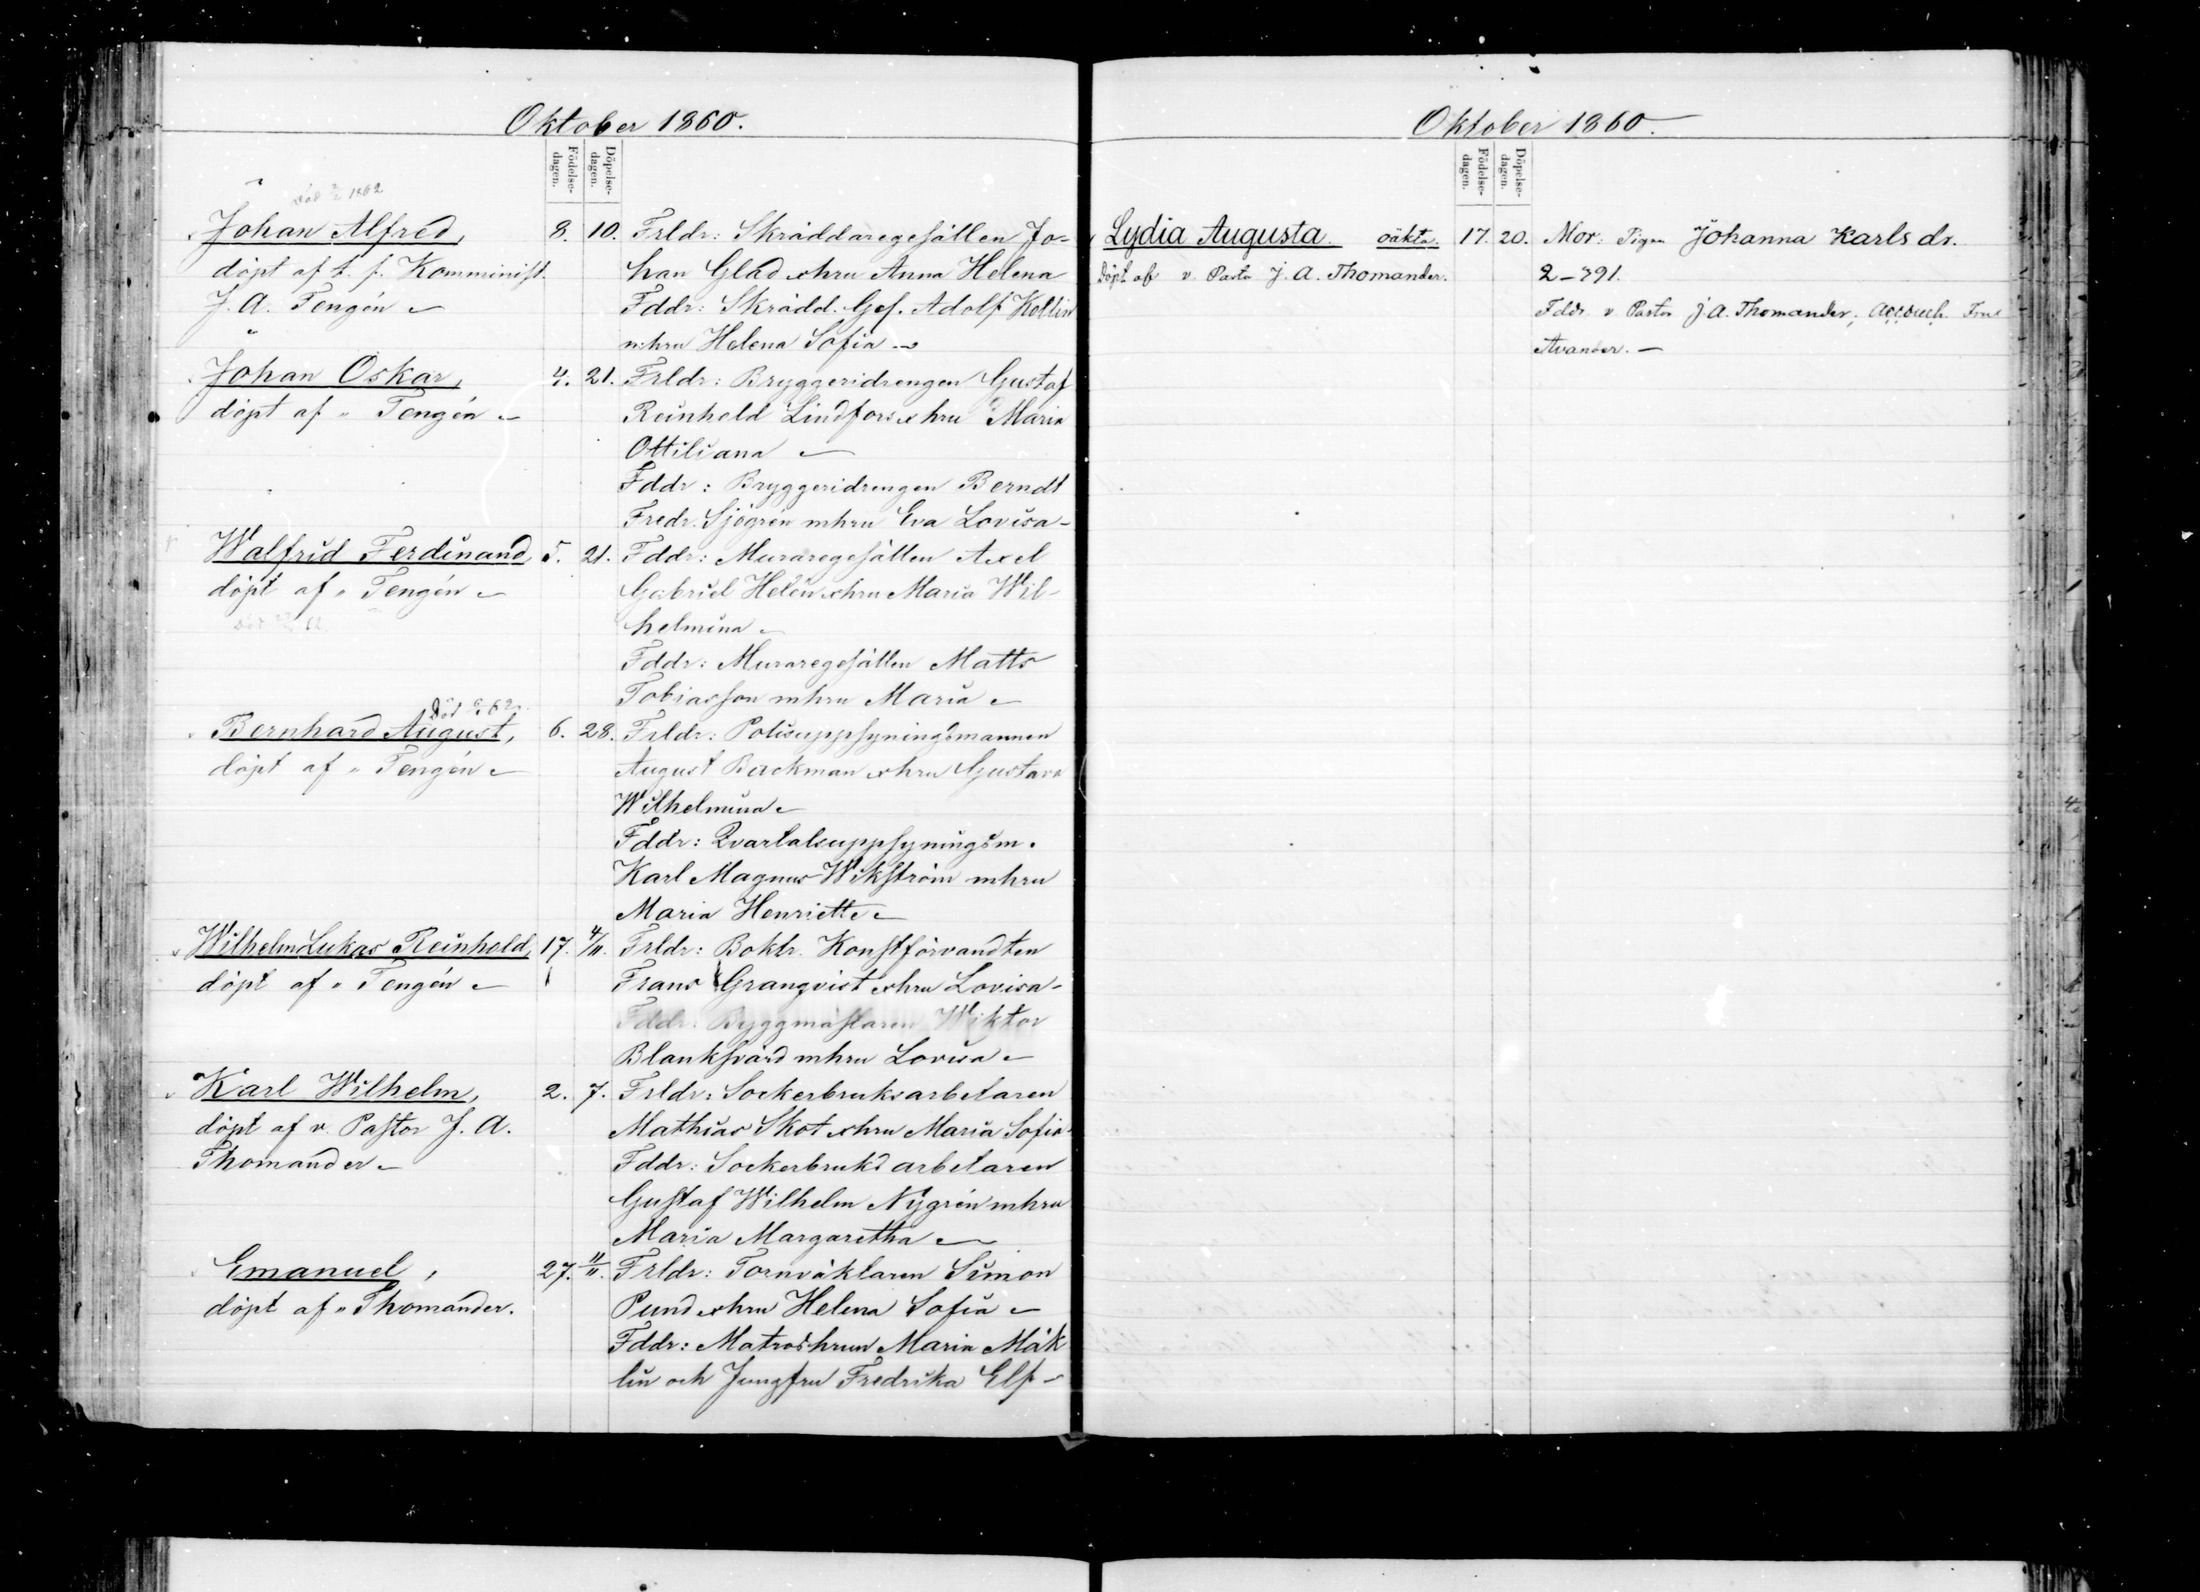 Oktober 1860.
Födelse-
dagen.
Döpelse-
dagen.
Död 1862
Johan Alfred, 8. 10. Frldr: Skräddaregesällen Jo-
döpt af t. f. Kominist. han Glad o hru Anna Helena
J. A. Tengén Fddr: Skrädd. Ges. Adolf Kollin
m hru Helena Sofia
Johan Oskar, 4. 21. Frldr: Bryggeridrengen Gustaf
döpt af " Tengén Reinhold Lindfors o hru Maria
Ottiliana
Fddr: Bryggeridrengen Berndt
Fredr. Sjögrén m hru Eva Lovisa
Walfrid Ferdinand, 5. 21. Fddr: Muraregesällen Axel
döpt af " Tengén Gabriel Helén o hru Maria Wil-
helmina
Fddr: Muraregesällen Matts
Tobiasson m hru Maria
Död 62
Bernhard August, 6. 28. Frldr: Polisuppsyningsmannen
döpt af " Tengén August Backman o hru Gustava
Wilhelmina
Fddr: Qvartalsuppsyningsm.
Karl Magnus Wikström m hru
Maria Henriette
Wilhelm Lukas Reinhold, 17. 4/11. Frldr: Boktr. Konstförvandten
döpt af " Tengén Frans Granqvist o hru Lovisa
Fddr: Byggmästaren Wiktor
Blanksvärd m hru Lovisa
Karl Wilhelm, 2. 7. Frldr: Sockerbruksarbetaren
döpt af v. Pastor J. A. Mathias Skot o hru Maria Sofia
Thomander Fddr: Sockerbruksarbetaren
Gustaf Wilhelm Nygrén m hru
Maria Margaretha
Emanuel, 27. 11/11. Frldr: Tornväktaren Simon
döpt af " Thomander. Pund o hru Helena Sofia
Fddr: Matroshrun Maria Mäk
lin och Jungfru Fredrika Elf
Oktober 1860.
Födelse-
dagen.
Döpelse-
dagen.
Lydia Augusta oäkta. 17. 20. Mor: Pigan Johanna Karlsdr.
Döpt af v. Pastor J. A. Thomander. 2-391.
Fddr v Pastor J. A. Thomander,
Avander.